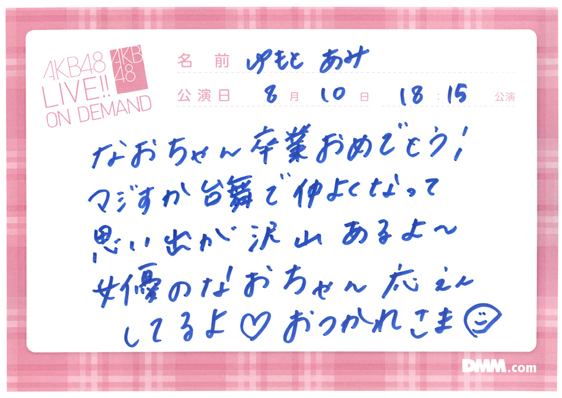 AKB48
LIVE!!
ON DEMAND
AKB
48
名前 ゆもと あみ
公演日 8月10日 18:15公演
なおちゃん卒業おめでとう!
マジすか台舞で仲よくなって
思い出が沢山あるよ〜
女優のなおちゃん応えん
してるよ♡おつかれさま
DMM.com